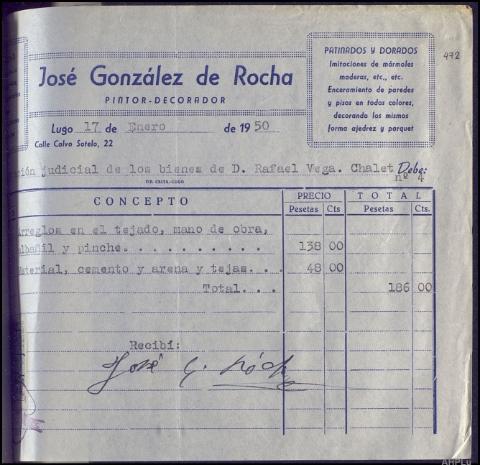 PATINADOS Y DORADOS
Imitaciones de mármoles
maderas, etc., etc.
Enceramiento de paredes
y pisos en todos colores,
decorando los mismos
forma ajedrez y parquet
472
José González de Rocha
PINTOR-DECORADOR
Lugo 17 de Enero de 1950
Calle Calvo Sotelo, 22
ción judicial de los bienes de D. Rafael Vega. Chalet Debe:
nº 4
CONCEPTO PRECIO TOTAL
Pesetas Cts Pesetas Cts.
Arreglos en el tejado, mano de obra,
albañil y pinche. . . . . . . . . . . 138 00
Material, cemento y arena y tejas. . . 48 00
Total. . . 186 00
Recibí:
José G. Rócha
AHPLu